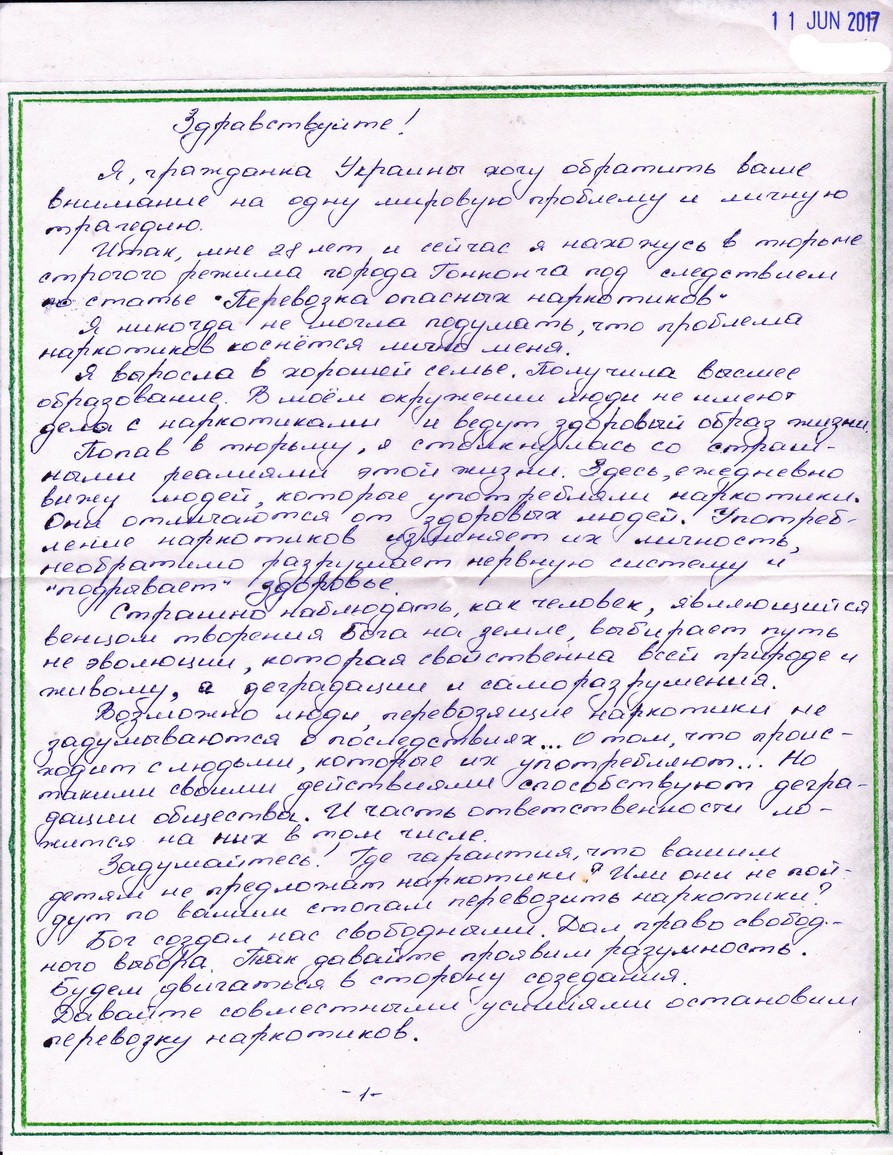 11 JUN 2017
Здравствуйте!
Я, гражданка Украины хочу обратить ваше
внимание на одну мировую проблему и личную
трагедию.
Итак, мне 28 лет и сейчас я нахожусь в тюрьме
строгого режима города Гонконга под следствием
по статье "Перевозка опасных наркотиков"
Я никогда не могла подумать, что проблема
наркотиков коснётся лично меня.
Я выросла в хорошей семье. Получила высшее
образование. В моём окружении люди не имеют
дела с наркотиками и ведут здоровый образ жизни.
Попав в тюрьму, я столкнулась со страш-
ными реалиями этой жизни. Здесь, ежедневно
вижу людей, которые употребляли наркотики.
Они отличаются от здоровых людей. Употреб-
ление наркотиков изменяет их личность,
необратимо разрушает нервную систему и
"подрывает" здоровье.
Страшно наблюдать, как человек, являющийся
венцом творения Бога на земле, выбирает путь
не эволюции, которая свойственна всей природе и
живому, а деградации и саморазрушения.
Возможно люди, перевозящие наркотики не
задумываются о последствиях... О том, что проис-
ходит с людьми, которые их употребляют... Но
такими своими действиями способствуют дегра-
дации общества. И часть ответственности ло-
жится на них в том числе.
Задумайтесь! Где гарантия, что вашим
детям не предложат наркотики? Или они не пой-
дут по вашим стопам перевозить наркотики?
Бог создал нас свободными. Дал право свобод-
ного выбора. Так давайте проявим разумность.
Будем двигаться в сторону созедания.
Давайте совместными усилиями остановим
перевозку наркотиков.
-1-